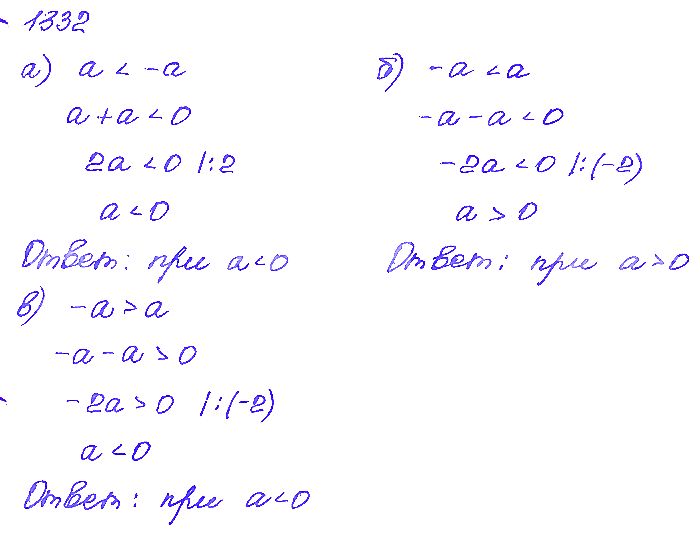 1332
а) a < -a
a + a < 0
2a < 0 |:2
a < 0
Ответ: при a < 0
б) -a < a
-a - a < 0
-2a < 0 |:(-2)
a > 0
Ответ: при a > 0
в) -a > a
-a - a > 0
-2a > 0 |:(-2)
a < 0
Ответ: при a < 0